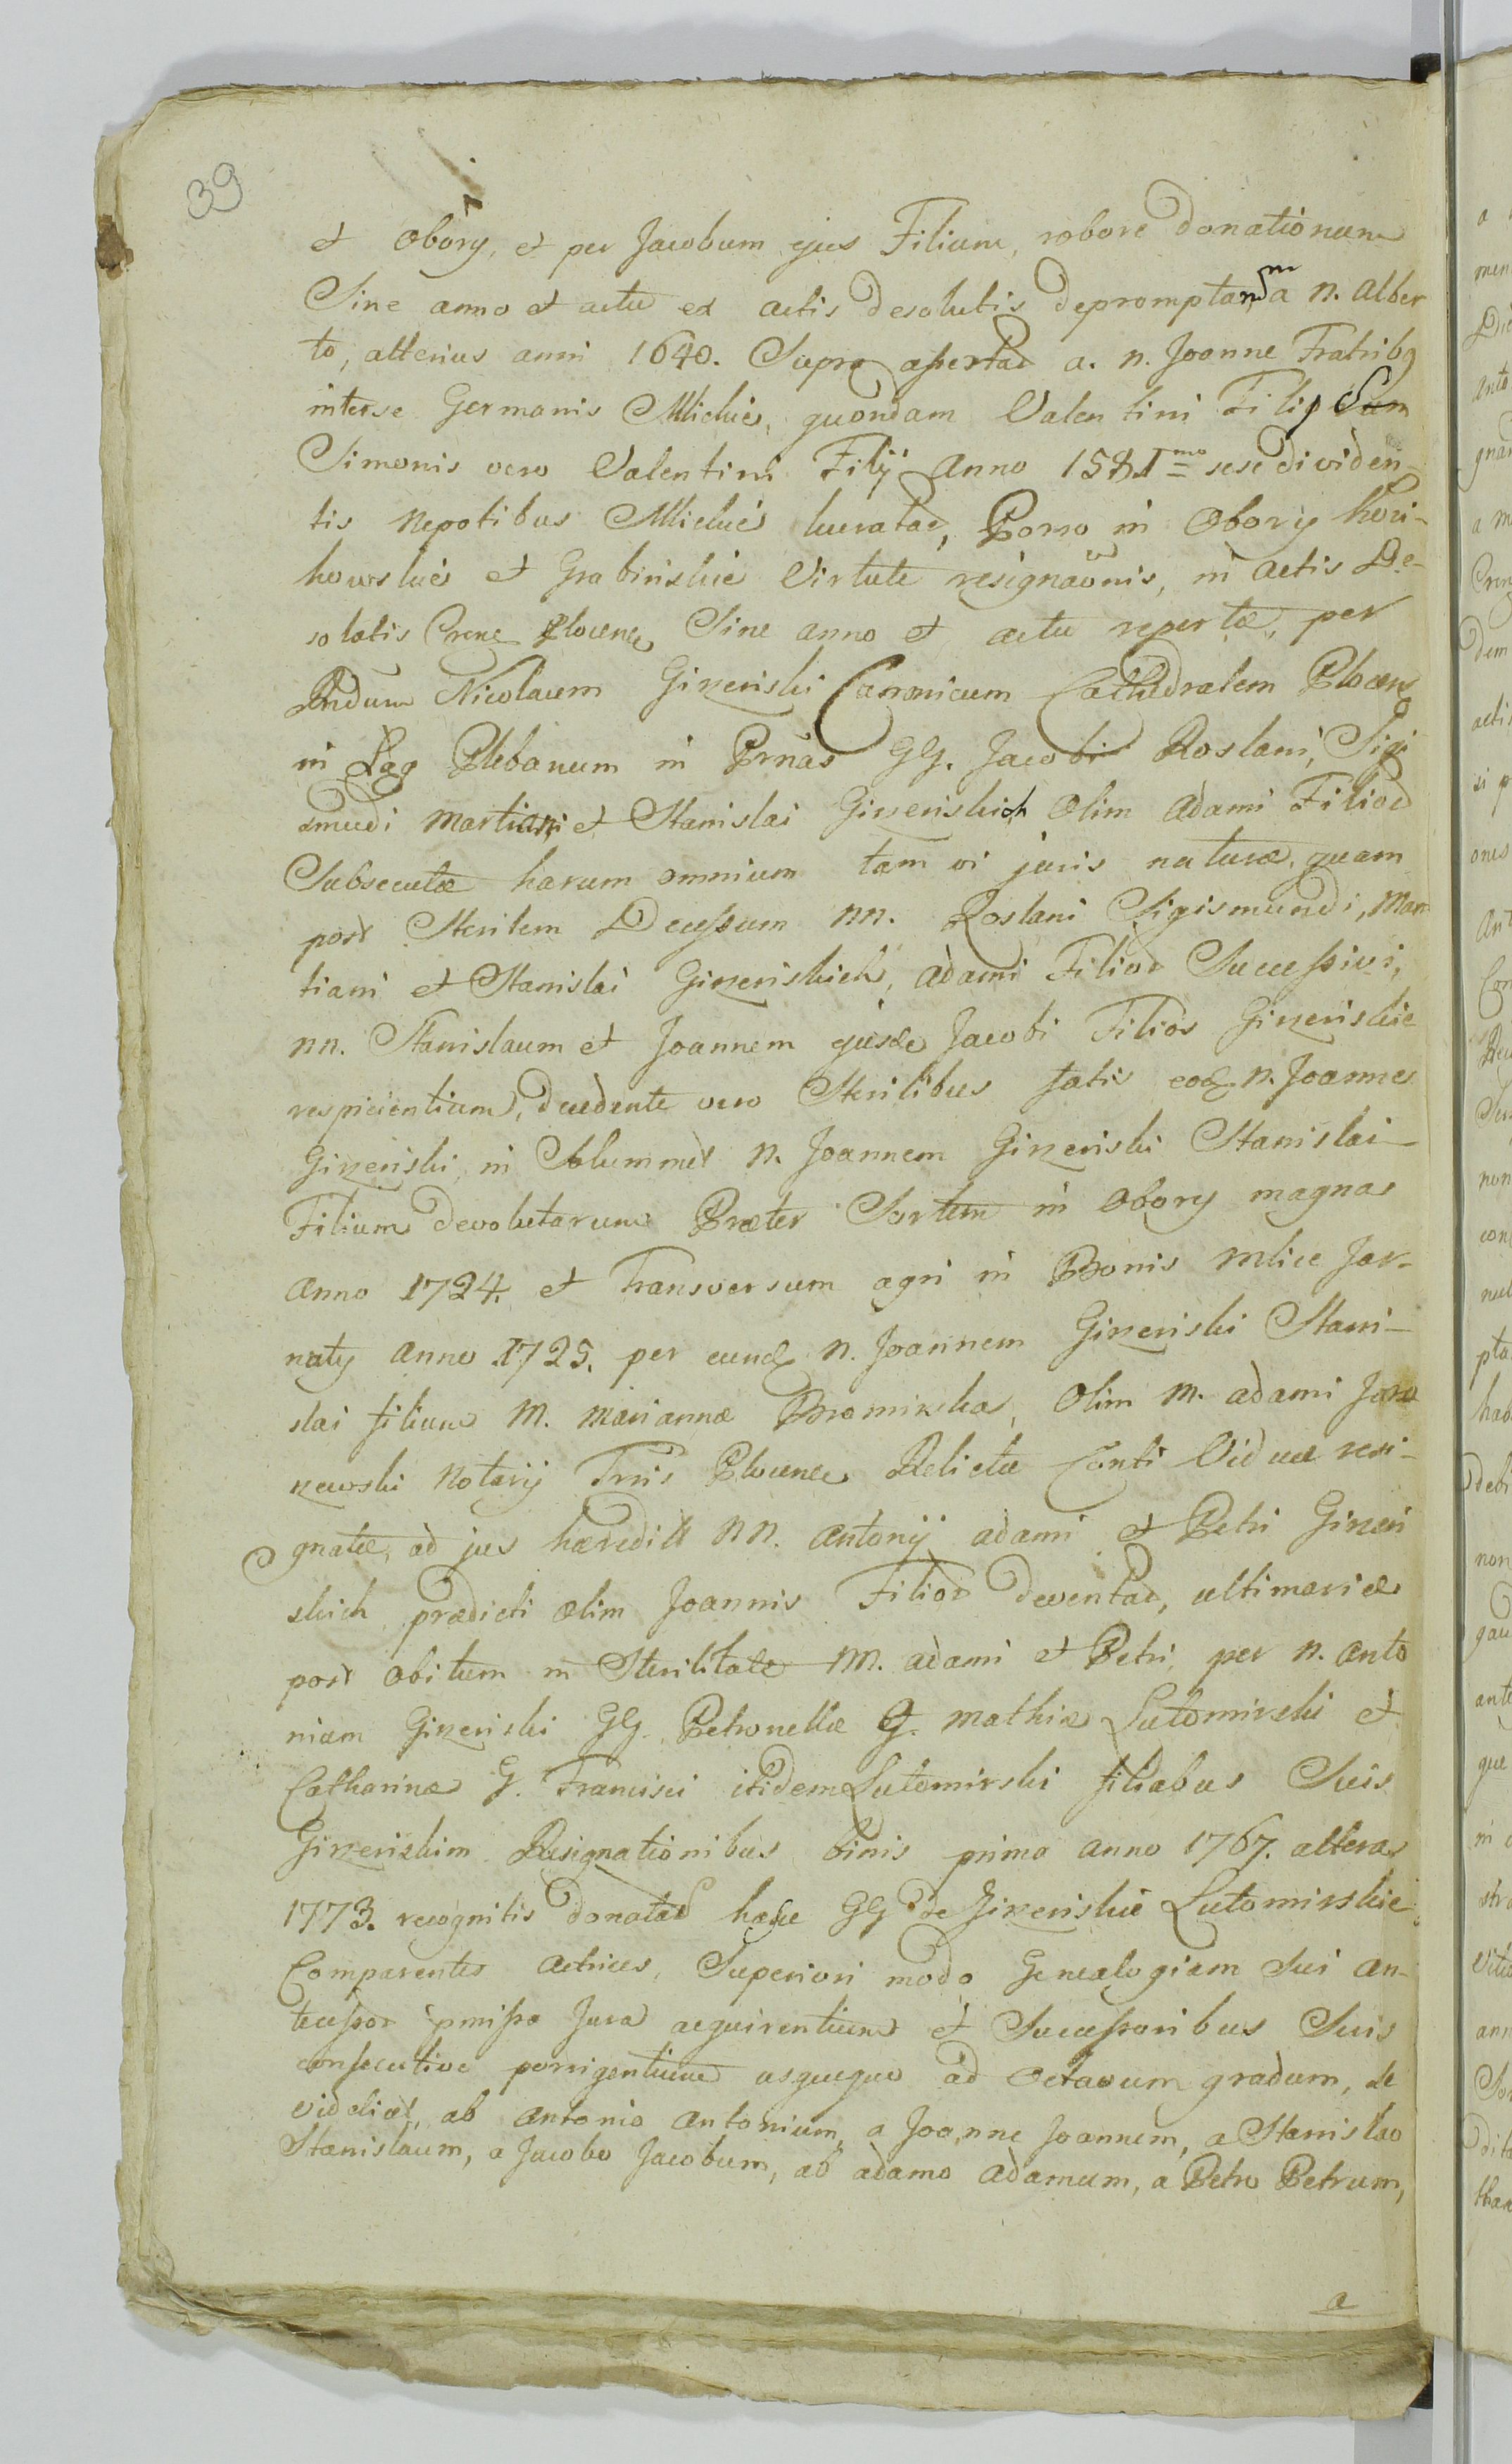 39
et Obory, et per Jacobum ejus Filium, robore donationum
Sine anno et actu ex actis desolutis depromptar, a n. Alber
to, alterius anni 1640. Supra assertar a. n. Joanne Fratribq
interse Germanis Mlickie, quondam Valentini Filijs
Simonis vero Valentini Filij Anno 1581mo sese dividen
tis Nepotibus Mlickie lucratar, Porro in Obory
et Grabinskie Virtute resignaonis, in Actis De-
solatis Crene Plocens Sine anno et actu repertæ, per
Rndum Nicolaum Gizeński Canonicum Cathedralem Plocens
in Łęg Plebanum in Prnas GG. Jacobi Roslani, Sigi
smudi Martiani et Stanislai Gizeńskich Olim Adami Filior
Subsecutæ harum omnium tam vi juris naturæ, quam
post Sterilem Decessum nn. Roslani Sigismundi, Mar
tiani et Stanislai Gizeńskich, Adami Filior Successivi,
nn. Stanislaum et Joannem ejusde Jacobi Filios Gizeńskie
respicientium, decedente vero Sterilibus fatis eod. n. Joanne
Gizeński, in Solummet n. Joannem Gizeński Stanislai
Filium devolutarum Præter Sortem in Obory magnas
Anno 1724. et Transversum agri in Bonis Mlice Jar-
naty Anno 1725. per eund n. Joannem Gizeński Stani-
slai filium M. Mariannæ Bromirska, Olim M. Adami Jaro
szewski Notarij Trris Plocens Relictæ Conti Viduæ resi-
gnatæ, ad jus hæredit NN. Antonij Adami et Petri Gizeń
skich prædicti olim Joannis Filior deventar, ultimarie
post obitum in Sterilitate NN. Adami et Petri, per n. Anto
nium Gizeński GG. Petronellæ G. Mathiæ Lutomirski et
Catharinæ G. Francisci itidem Lutomirski filiabus Suis
Gizeńskim Resignationibus binis prima anno 1767. altera
1773. recognitis donatar hæse GG de Gizeńskie Lutomirskie
Comparentes Actrices, Superiori modo Genealogiam Sui An-
tecessor pmisso Jura acquirentium et Successoribus Suis
consecutive porrigentium usqueque ad Octavum gradum, de
videlicet, ab Antonio Antonium, a Joanne Joannem, a Stanislao
Stanislaum, a Jacobo Jacobum, ab Adamo Adamum, a Petro Petrum,
a